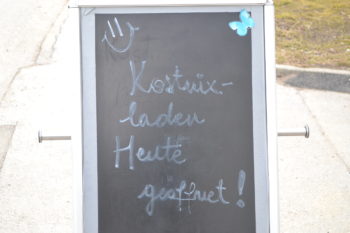 Kostnix-
laden
Heute
geöffnet!